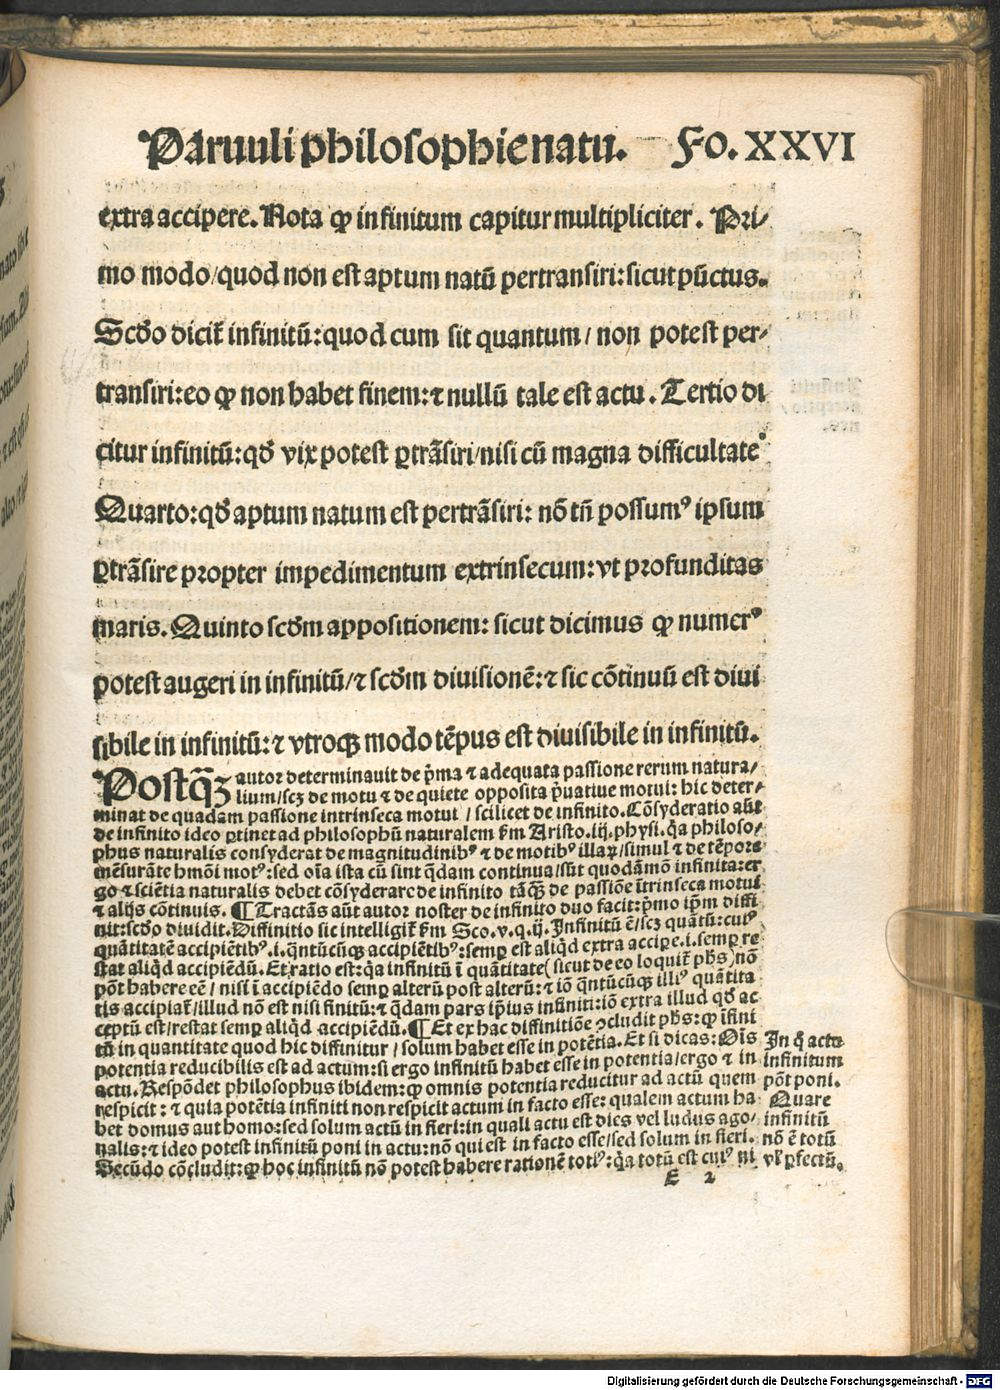 Paruuli philosophie natu. Fo. XXVI
extra accipere. Nota ꝙ infinitum capitur multipliciter. Pri⸗
mo modo/quod non est aptum natū pertransiri: sicut pūctus.
Scd̉o dicit̉ infinitū: quod cum sit quantum/ non potest per⸗
transiri: eo ꝙ non habet finem: ⁊ nullū tale est actu. Tertio di
citur infinitū: qd̉ vix potest ꝑtrāsiri/nisi cū magna difficultate
Quarto: qd̉ aptum natum est pertrāsiri: nō tn̄ possumꝰ ipsum
ꝑtrāsire propter impedimentum extrinsecum: vt profunditas
maris. Quinto scd̉m appositionem: sicut dicimus ꝙ numerꝰ
potest augeri in infinitū/⁊ scd̉m diuisionē: ⁊ sic cōtinuū est diui
sibile in infinitū: ⁊ vtroqꝫ modo tēpus est diuisibile in infinitū.
Postq̄ꝫ autor determinauit de p̄ma ⁊ adequata passione rerum natura⸗
lium/scꝫ de motu ⁊ de quiete opposita p̄uatiue motui: hic deter⸗
minat de quadam passione intrinseca motui/ scilicet de infinito. Cōsyderatio aūt
de infinito ideo ꝑtinet ad philosophū naturalem ẜm Aristo. iij. physi. q̄a philoso⸗
phus naturalis consyderat de magnitudinibꝰ ⁊ de motibꝰ illaꝝ/simul ⁊ de tēpore
mēsurāte hmōi motꝰ: sed oīa ista cū sint q̄dam continua/sūt quodāmō infinita: er⸗
go ⁊ sciētia naturalis debet cōsyderare de infinito tāq̄ꝫ de passiōe ītrinseca motui
⁊ alijs cōtinuis. ¶ Tractās aūt autor noster de infinito duo facit: p̄mo ip̄m diffi
nit: scd̉o diuidit. Diffinitio sic intelligit̉ ẜm Sco. v. q. ij. Infinitū ē/scꝫ quātū: cuiꝰ
quātitatē accipiētibꝰ .i. q̄ntūcūqꝫ accipiētibꝰ: semꝑ est aliq̄d extra accipe .i. semꝑ re
stat aliq̄d accipiēdū. Et ratio est: q̄a infinitū ī quātitate (sicut de eo loquit̉ ph̄s) nō
pōt habere eē/ nisi ī accipiēdo semꝑ alterū post alterū: ⁊ iō q̄ntūcūqꝫ illiꝰ quātita
tis accipiat̉/illud nō est nisi finitū: ⁊ q̄dam pars ip̄ius infiniti: iō extra illud qd̉ ac
ceptū est/restat semꝑ aliq̄d accipiēdū. ¶ Et ex hac diffinitiōe ꝯcludit ph̄s: ꝙ īfini
tū in quantitate quod hic diffinitur/ solum habet esse in potētia. Et si dicas: Oīs
potentia reducibilis est ad actum: si ergo infinitū habet esse in potentia/ergo ⁊ in
actu. Respōdet philosophus ibidem: ꝙ omnis potentia reducitur ad actū quem
respicit: ⁊ quia potētia infiniti non respicit actum in facto esse: qualem actum ha
bet domus aut homo: sed solum actū in fieri: in quali actu est dies vel ludus ago⸗
nalis: ⁊ ideo potest infinitū poni in actu: nō qui est in facto esse/sed solum in fieri.
Secūdo cōcludit: ꝙ hoc infinitū nō potest habere rationē totiꝰ: q̄a totū est cuiꝰ ni
In q̄ actu
infinitum
pōt poni.
Quare
infinitū
nō ē totū
vl̉ ꝑfectū.
E 2
Digitalisierung gefördert durch die Deutsche Forschungsgemeinschaft - DFG